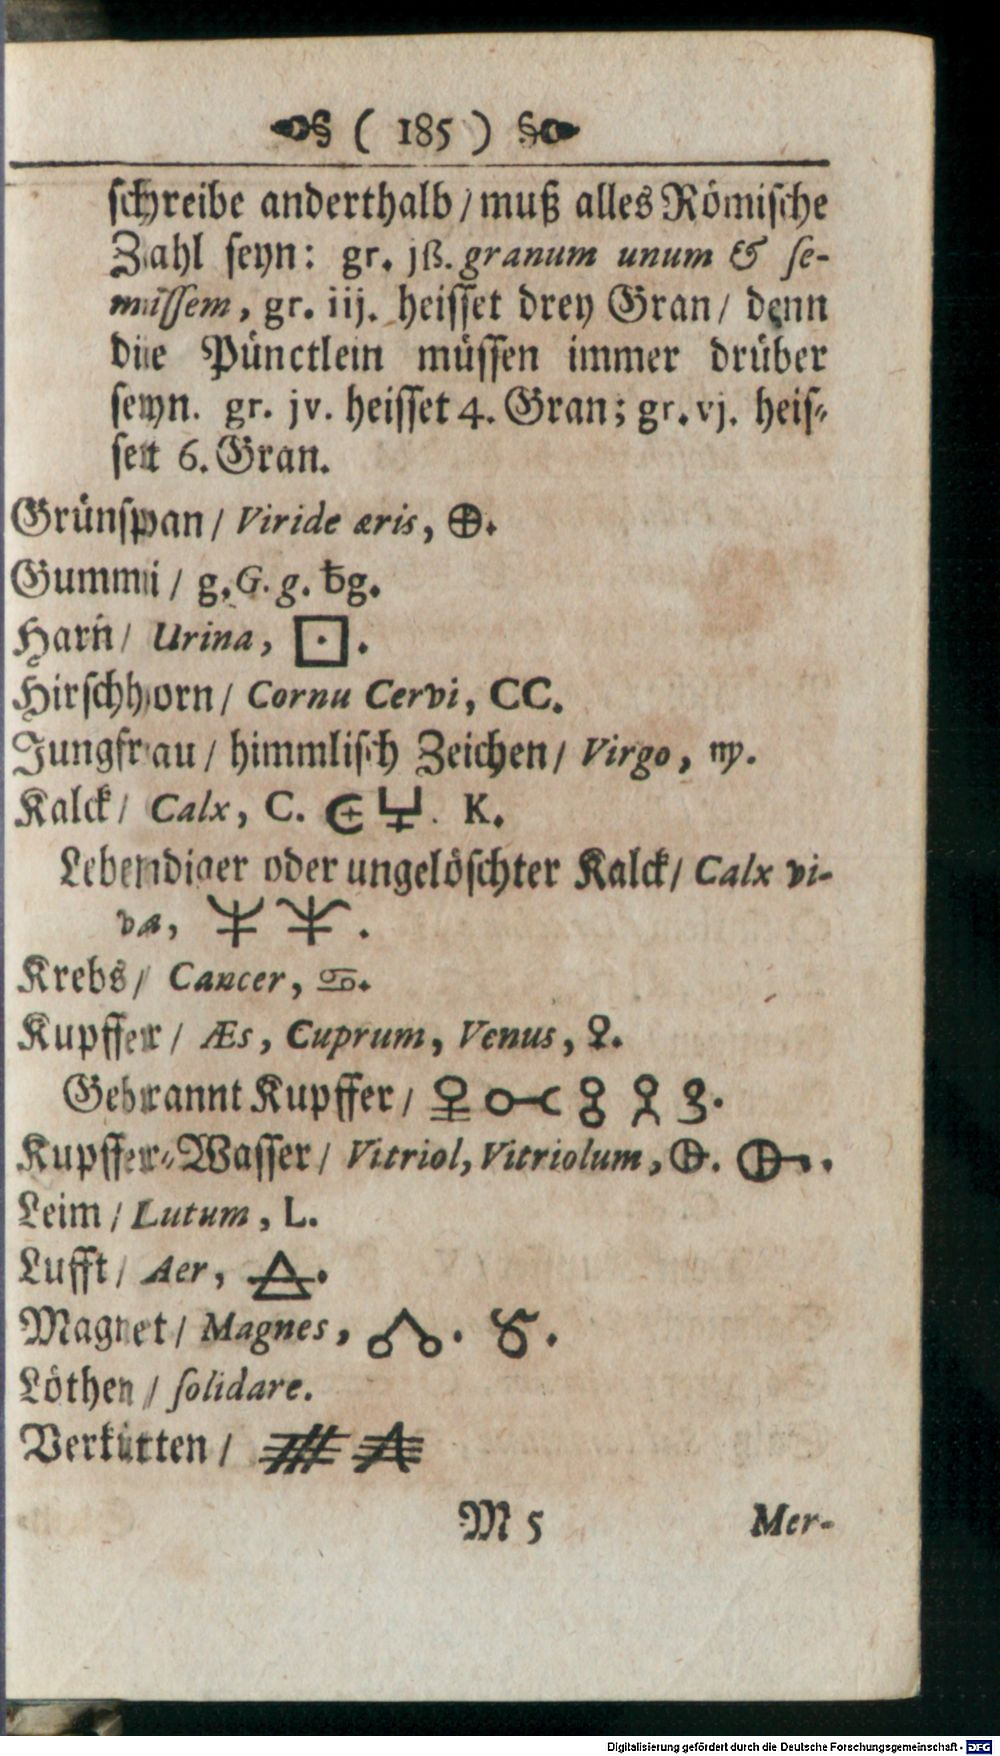 ( 185 )
schreibe anderthalb / muß alles Römische
Zahl seyn: gr. jß. granum unum & se-
missem, gr. iij. heisset drey Gran / denn
die Pünctlein müssen immer drüber
seyn. gr. jv. heisset 4. Gran; gr. vj. heis-
set 6. Gran.
Grünspan / Viride æris, 🜨.
Gummi / g. G. g. ƀg.
Harn / Urina, ⊡.
Hirschhorn / Cornu Cervi, CC.
Jungfrau / himmlisch Zeichen / Virgo, ♍.
Kalck / Calx, C. K.
Lebendiger oder ungelöschter Kalck / Calx vi-
va,
Krebs / Cancer, ♋.
Kupffer / Æs, Cuprum, Venus, ♀.
Gebrannt Kupffer /
Kupffer-Wasser / Vitriol, Vitriolum,
Leim / Lutum, L.
Lufft / Aer, 🜁.
Magnet / Magnes,
Löthen / solidare.
Verkütten /
M 5 Mer-
Digitalisierung gefördert durch die Deutsche Forschungsgemeinschaft - DFG